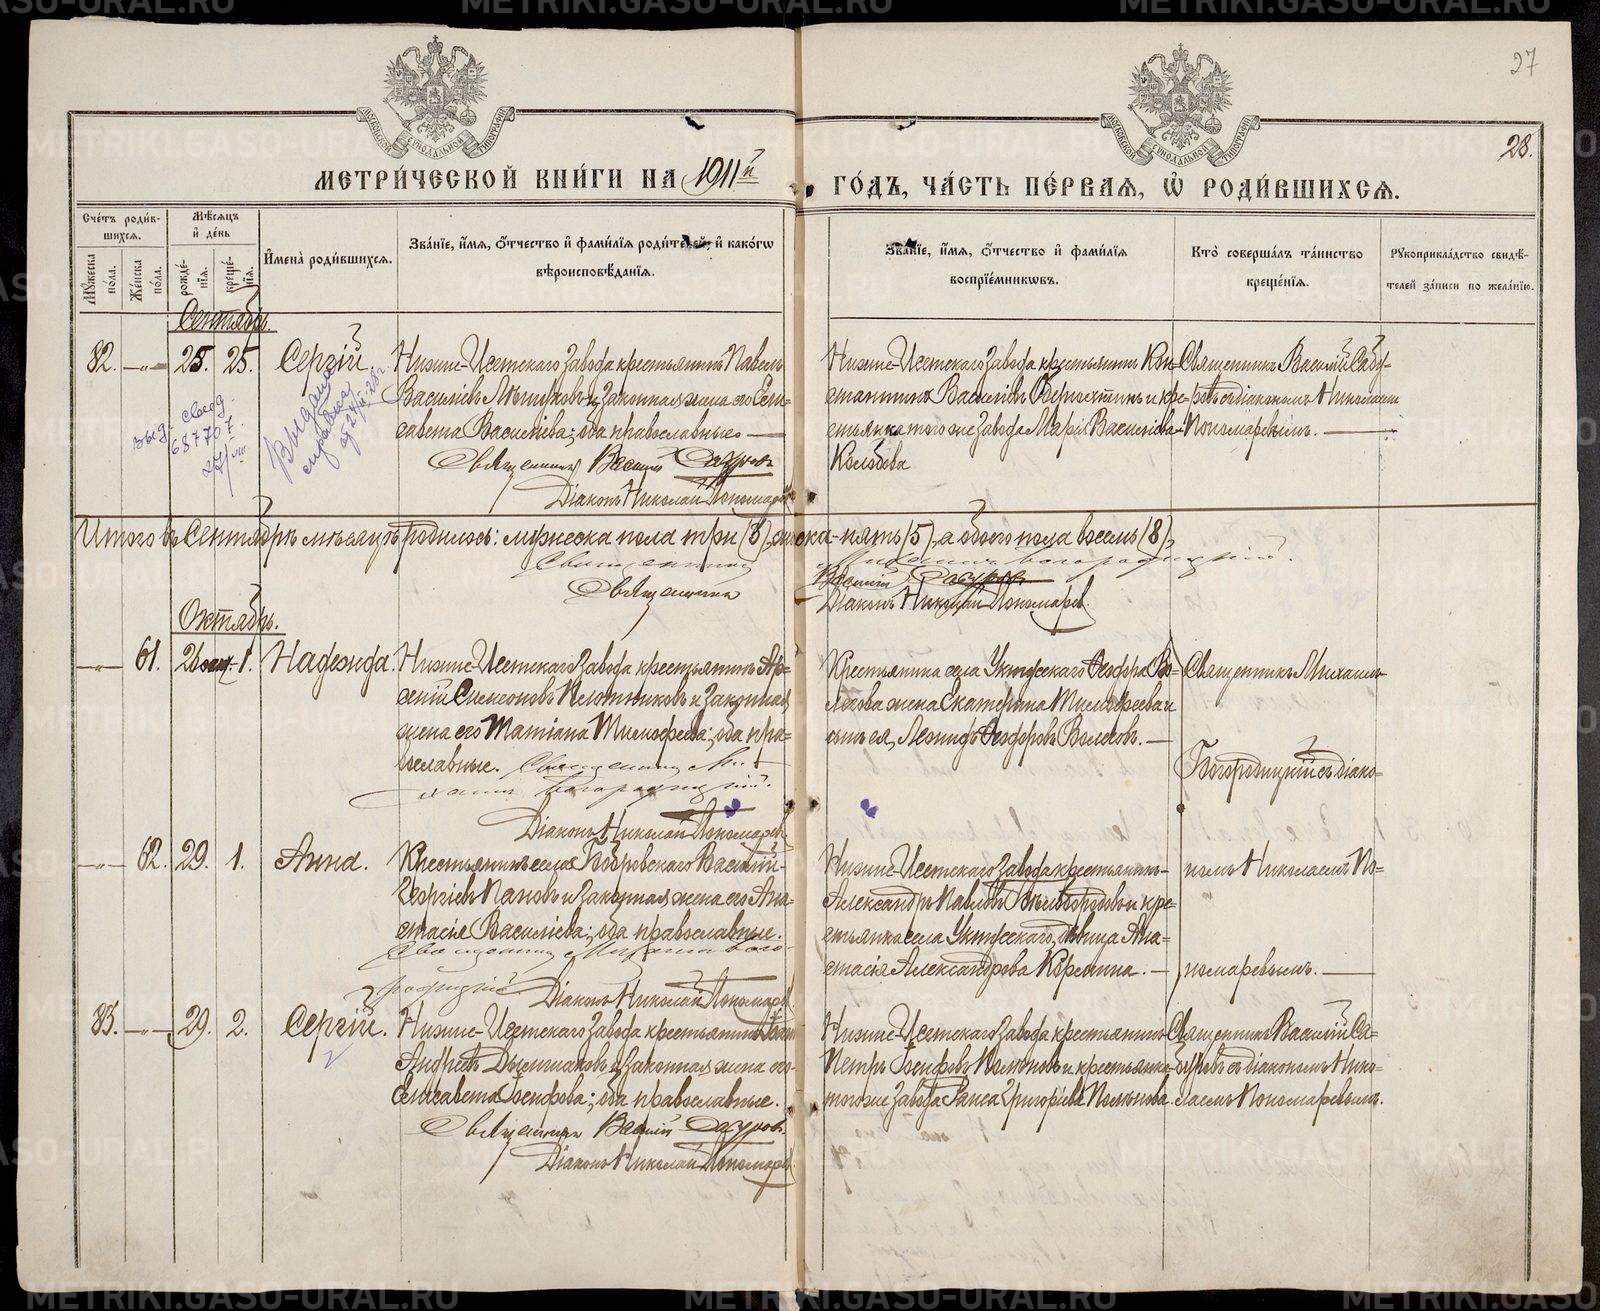 27
28.
МЕТРИ́ЧЕСКОЙ КНИ́ГИ НА 1911й ГО́ДЪ, ЧА́СТЬ ПЕ́РВАЯ, Ѡ РОДИ́ВШИХСЯ.
Сче́тъ роди́вшихся.
Мꙋ́жеска по́ла.
Же́нска по́ла.
Мѣ́сяцъ и҆ де́нь
рожде́нїя.
креще́нїя.
И҆мена̀ роди́вшихся.
Зва́нїе, и҆́мя, ѻ҆́тчество и҆ фами́лїя роди́телей, и҆ како́гѡ вѣроисповѣ́данїя.
Зва́нїе, и҆́мя, ѻ҆́тчество и҆ фами́лїя воспрїе́мникѡвъ.
Кто̀ соверша́лъ та́инство креще́нїя.
Рꙋкоприкла́дство свидѣ́телей за́писи по жела́нїю.
Сентябрь.
82. —„— 25. 25. Сергій.
Нижне-Исетскаго завода крестьянинъ Павелъ
Василіевъ и законная жена его Ели-
савета Василіева; оба православные
Священникъ Василій
Діаконъ Николай Пономаревъ
Нижне-Исетскаго завода крестьянинъ Кон-
стантинъ Василіевъ и кре-
стьянка того же завода Марія Василіева
Священникъ Василій
съ діакономъ Николаемъ
Пономаревымъ.
687707
Итого въ Сентябрѣ мѣсяцѣ родилось: мужеска пола три (3), женска - пять (5), а обоего пола восемь (8).
Священникъ Михаилъ Богородицкій.
Священникъ Василій
Діаконъ Николай Пономарев.
Октябрь.
—„— 61. 1. Надежда.
Нижне-Исетскаго завода крестьянинъ Ар-
сеній Симеоновъ Плотниковъ и законная
жена его Татіана Тимофеева; оба пра-
вославные. Священникъ Ми-
хаилъ Богородицкій.
Діаконъ Николай Пономаревъ
Крестьянина села Уктусскаго Ѳеодора Во-
легова жена Екатерина Тимофеева и
сынъ ея, Леонидъ Ѳеодоровъ Волеговъ.
Священникъ Михаилъ
Богородицкій съ діако-
—„— 62. 29. 1. Анна.
Крестьянинъ села Василій
Георгіевъ Пановъ и законная жена его Ана-
стасія Василіева; оба православные.
Священникъ Михаилъ Бого-
родицкій Діаконъ Николай Пономарев
Нижне-Исетскаго завода крестьянинъ
Александръ Павловъ Бѣлобородовъ и кре-
стьянка села Уктусскаго, дѣвица Ана-
стасія Александрова
номъ Николаемъ По-
номаревымъ.
83. —„— 29. 2. Сергій.
Нижне-Исетскаго завода крестьянинъ
Андреевъ и законная жена его
Елисавета Іосифова; оба православные.
Священникъ Василій
Діаконъ Николай Пономарев
Нижне-Исетскаго завода крестьянинъ
Петръ Іосифовъ и крестьянка
того же завода Раиса Григоріева
Священникъ Василій
съ діакономъ Нико-
лаемъ Пономаревымъ.
METRIKI.GASO-URAL.RU